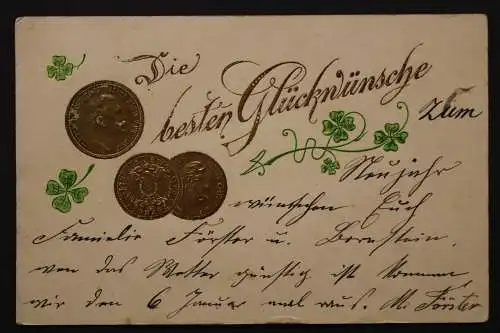 Die
besten Glückwünsche
zum
Neujahr
wünschen Euch
Familie Förster u. Bornstein.
wen das Wetter günstig ist kommen
wir den 6 Januar mal raus. M. Förster